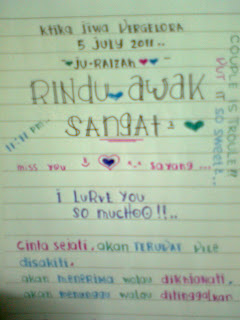 Ktika Jiwa BERGELORA
5 JULY 2011..
~JU-RAIZAN~
RINDU AWAK
SANGAT
11:11 PM~
miss you *-* sayang ...
i LuRVE YOU
SO mucHOO!!..
cinta sejati, akan
disakiti.
akan menerima walau dikhianati.
akan menunggu walau ditinggalkan.
COUPLE IS TROUBLE!!
BUT IT SO SWEET...